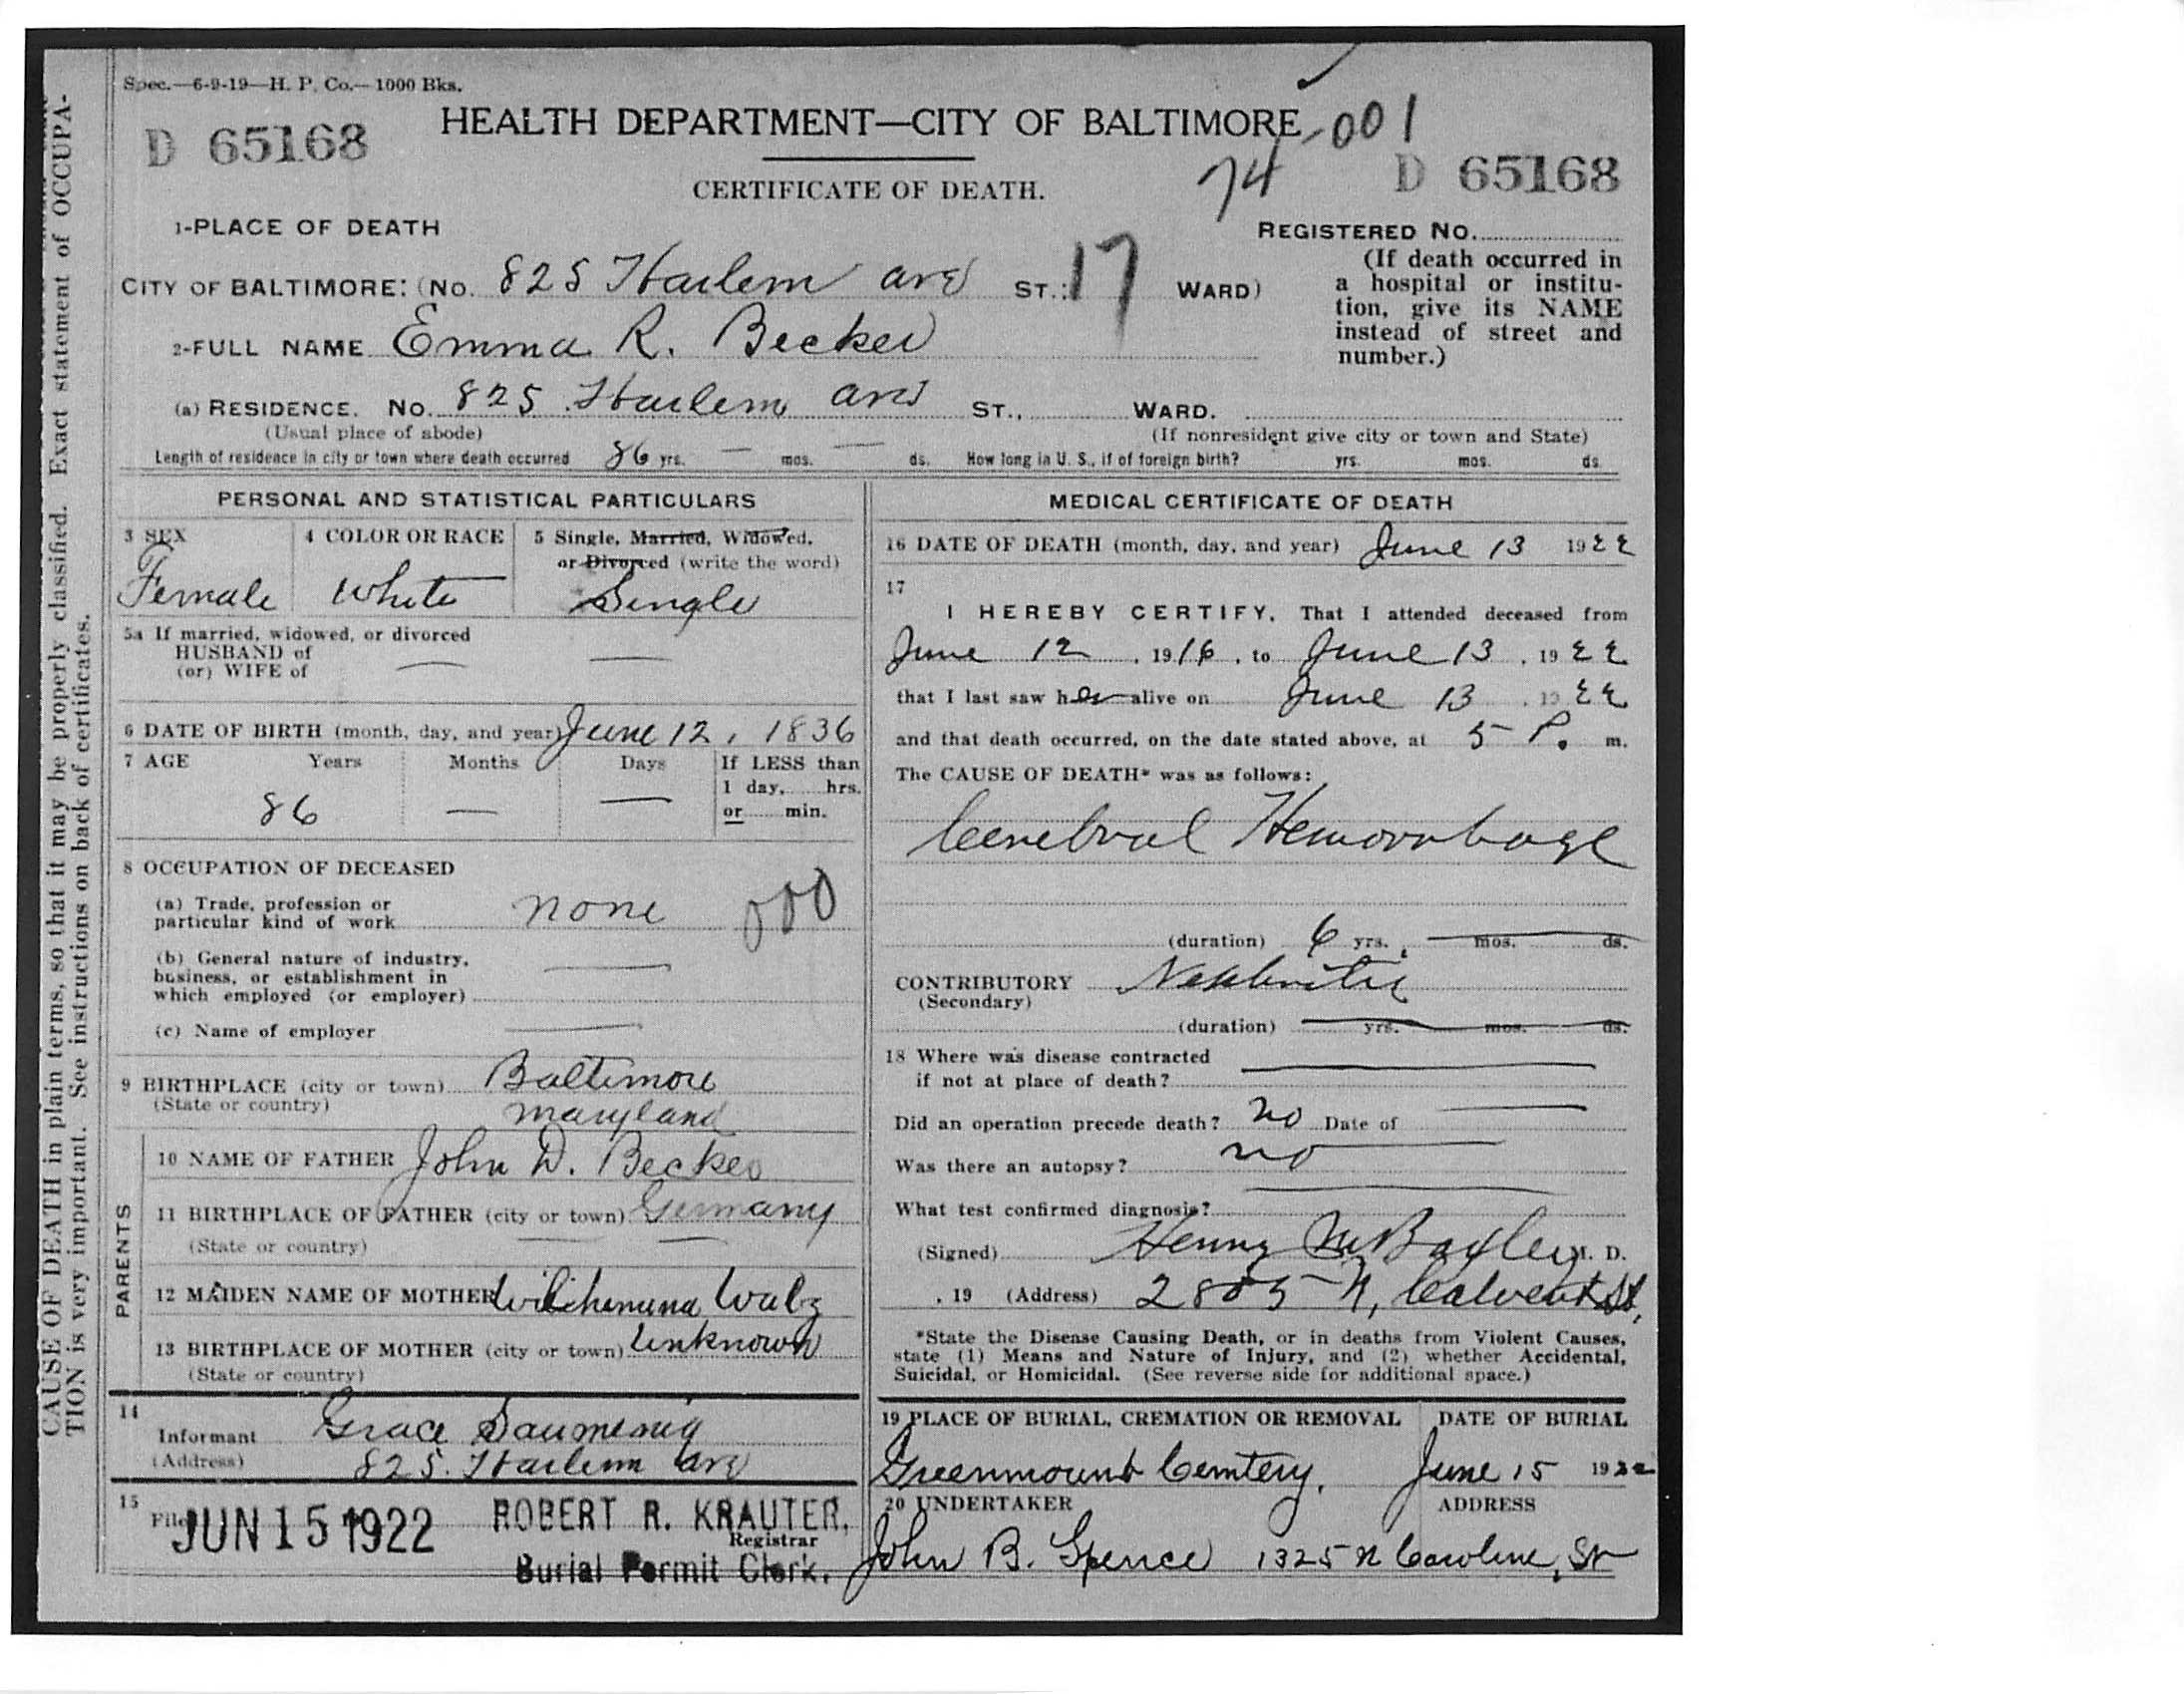 Spec.—6-9-19—H. P. Co.—1000 Bks.
D 65168
HEALTH DEPARTMENT—CITY OF BALTIMORE
74-001
D 65168
CERTIFICATE OF DEATH.
1-PLACE OF DEATH
REGISTERED NO.
CITY OF BALTIMORE: (NO. 825 Harlem ave ST.: 17 WARD)
(If death occurred in
a hospital or institu-
tion, give its NAME
instead of street and
number.)
2-FULL NAME Emma R. Becker
(a) RESIDENCE. NO. 825 Harlem ave ST., WARD.
(Usual place of abode)
(If nonresident give city or town and State)
Length of residence in city or town where death occurred 86 yrs. — mos. — ds. How long in U. S., if of foreign birth? yrs. mos. ds.
PERSONAL AND STATISTICAL PARTICULARS
3 SEX
Female
4 COLOR OR RACE
White
5 Single, Married, Widowed,
or Divorced (write the word)
Single
5a If married, widowed, or divorced
HUSBAND of
(or) WIFE of — —
6 DATE OF BIRTH (month, day, and year) June 12, 1836
7 AGE Years Months Days If LESS than
1 day,......hrs.
or......min.
86 — —
8 OCCUPATION OF DECEASED
(a) Trade, profession or
particular kind of work none 000
(b) General nature of industry,
business, or establishment in
which employed (or employer) —
(c) Name of employer —
9 BIRTHPLACE (city or town) Baltimore
(State or country) Maryland
PARENTS
10 NAME OF FATHER John D. Becker
11 BIRTHPLACE OF FATHER (city or town) Germany
(State or country) — —
12 MAIDEN NAME OF MOTHER Wilhemena Walz
13 BIRTHPLACE OF MOTHER (city or town) Unknown
(State or country)
14
Informant Grace Saumenig
(Address) 825. Harlem ave
15
Filed JUN 15 1922 ROBERT R. KRAUTER,
Registrar
Burial Permit Clerk.
MEDICAL CERTIFICATE OF DEATH
16 DATE OF DEATH (month, day, and year) June 13 1922
17
I HEREBY CERTIFY, That I attended deceased from
June 12, 1916, to June 13, 1922
that I last saw her alive on June 13, 1922
and that death occurred, on the date stated above, at 5 P. m.
The CAUSE OF DEATH* was as follows:
Cerebral Hemorrhage
(duration) 6 yrs. mos. ds.
CONTRIBUTORY Nephritis
(Secondary)
(duration) yrs. mos. ds.
18 Where was disease contracted
if not at place of death?
Did an operation precede death? no Date of —
Was there an autopsy? no
What test confirmed diagnosis?
(Signed) Henry M Baxley M. D.
, 19 (Address) 2805 N, Calvert St,
*State the Disease Causing Death, or in deaths from Violent Causes,
state (1) Means and Nature of Injury, and (2) whether Accidental,
Suicidal, or Homicidal. (See reverse side for additional space.)
19 PLACE OF BURIAL, CREMATION OR REMOVAL DATE OF BURIAL
Greenmount Cemtery. June 15 1922
20 UNDERTAKER ADDRESS
John B. Spence 1325 N Caroline, St
CAUSE OF DEATH in plain terms, so that it may be properly classified. Exact statement of OCCUPA-
TION is very important. See instructions on back of certificates.